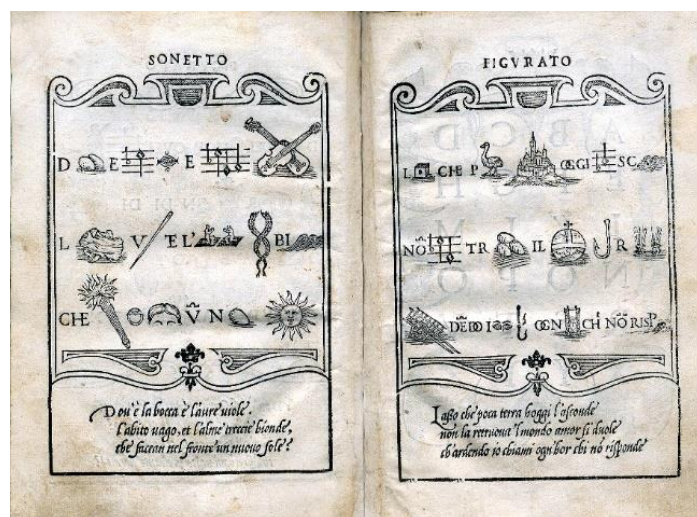 SONETTO
D E E
L V E L' BI
CHE V̄ N
Dou'è la bocca è l'aure uiole.
l'abito uago, et l'alme treccie bionde,
che facean nel fronte un nuouo sole?
FIGVRATO
L CHE P OGGI SC
NÕ TR IL R
DẼDO I OGN CHI NÕ RISP
Laßo che poca terra hoggi l'asconde
non la retruoua 'l mondo amor si duole
ch'ardendo io chiami ogn'hor chi nõ risponde